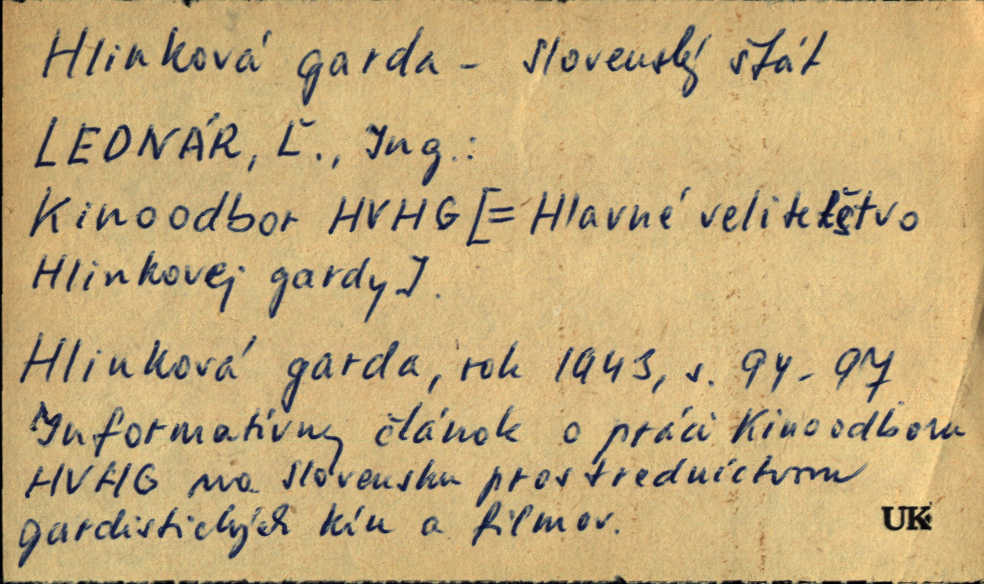 Hlinková garda - slovenský štát
LEDNÁR, Ľ., Ing.:
Kinoodbor HVHG [= Hlavné veliteľstvo
Hlinkovej gardy].
Hlinková garda, rok 1943, s. 94-97
Informatívny článok o práci Kinoodboru
HVHG na Slovensku prostredníctvom
gardistických kín a filmov.
UK